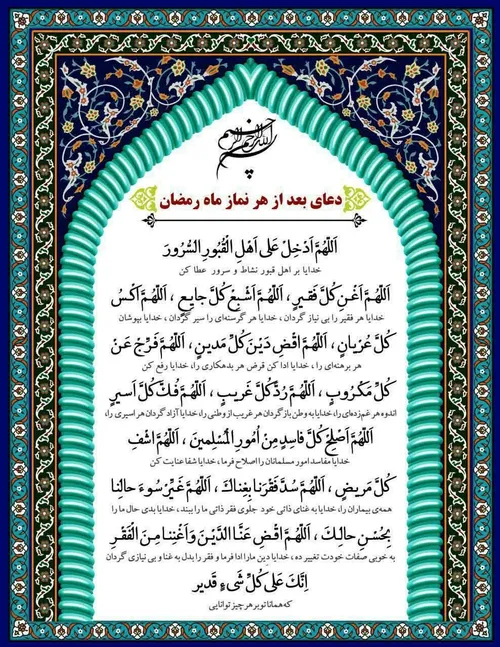 بسم الله الرحمن الرحیم
دعای بعد از هر نماز ماه رمضان
اَللّهُمَّ اَدْخِلْ عَلى اَهْلِ الْقُبُورِ السُّرُورَ
خدایا بر اهل قبور نشاط و سرور عطا کن
اَللّهُمَّ اَغْنِ كُلَّ فَقيرٍ ، اَللّهُمَّ اَشْبِعْ كُلَّ جايِعٍ ، اَللّهُمَّ اكْسُ
خدایا هر فقیر را بی نیاز گردان ، خدایا هر گرسنه‌ای را سیر گردان ، خدایا بپوشان
كُلَّ عُرْيانٍ ، اَللّهُمَّ اقْضِ دَيْنَ كُلِّ مَدينٍ ، اَللّهُمَّ فَرِّجْ عَنْ
هر برهنه‌ای را ، خدایا ادا کن قرض هر بدهکاری را، خدایا رفع کن
كُلِّ مَكْرُوبٍ ، اَللّهُمَّ رُدَّ كُلَّ غَريبٍ ، اَللّهُمَّ فُكَّ كُلَّ اَسيرٍ
اندوه هر غم‌زده‌ای را، خدایا به وطن بازگردان هر غریب از وطنی را، خدایا آزاد گردان هر اسیری را،
اَللّهُمَّ اَصْلِحْ كُلَّ فاسِدٍ مِنْ اُمُورِ الْمُسْلِمينَ ، اَللّهُمَّ اشْفِ
خدایا مفاسد امور مسلمانان را اصلاح فرما، خدایا شفا عنایت کن
كُلَّ مَريضٍ ، اَللّهُمَّ سُدَّ فَقْرَنا بِغِناكَ ، اَللّهُمَّ غَيِّرْ سُوءَ حالِنا
همه‌ی بیماران را، خدایا به غنای ذاتی خود جلوی فقر ذاتی ما را ببند ، خدایا بدی حال ما را
بِحُسْنِ حالِكَ ، اَللّهُمَّ اقْضِ عَنَّا الدَّيْنَ وَ اَغْنِنا مِنَ الْفَقْرِ
به خوبی صفات خودت تغییر ده ، خدایا دین ما را ادا فرما و فقر را بدل به غنا و بی نیازی گردان
اِنَّكَ عَلى كُلِّ شَىءٍ قَدير
که همانا تو بر هر چیز توانایی